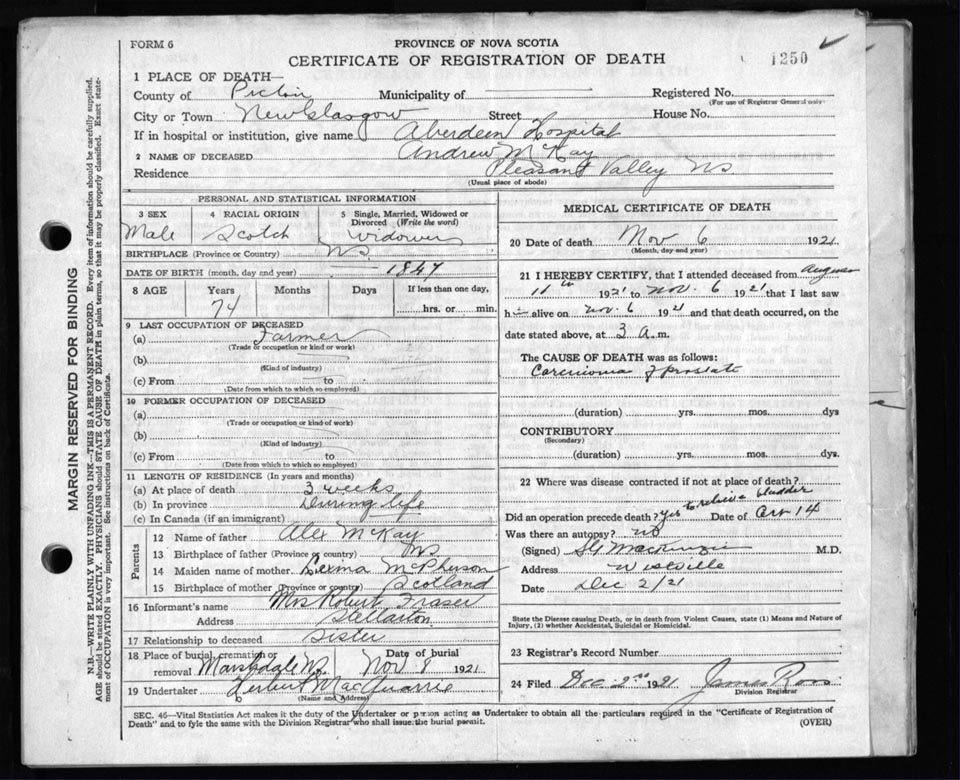 FORM 6
PROVINCE OF NOVA SCOTIA
CERTIFICATE OF REGISTRATION OF DEATH
1250
1 PLACE OF DEATH—
County of Pictou Municipality of Registered No.
(For use of Registrar General only)
City or Town New Glasgow Street House No.
If in hospital or institution, give name Aberdeen Hospital
2 NAME OF DECEASED Andrew McKay
Residence Pleasant Valley NS.
(Usual place of abode)
PERSONAL AND STATISTICAL INFORMATION
3 SEX Male
4 RACIAL ORIGIN Scotch
5 Single, Married, Widowed or Divorced (Write the word) Widower
BIRTHPLACE (Province or Country) NS
DATE OF BIRTH (month, day and year) — 1847
8 AGE Years 74 Months Days If less than one day, hrs. or min.
9 LAST OCCUPATION OF DECEASED
(a) Farmer
(Trade or occupation or kind of work)
(b)
(Kind of industry)
(c) From to
(Date from which to which so employed)
10 FORMER OCCUPATION OF DECEASED
(a)
(Trade or occupation or kind of work)
(b)
(Kind of industry)
(c) From to
(Date from which to which so employed)
11 LENGTH OF RESIDENCE (In years and months)
(a) At place of death 3 weeks
(b) In province During life
(c) In Canada (if an immigrant)
Parents
12 Name of father Alex McKay
13 Birthplace of father (Province or country) NS
14 Maiden name of mother McPherson
15 Birthplace of mother (Province or country) Scotland
16 Informant's name Mrs Robert Fraser
Address Stellarton
17 Relationship to deceased Sister
18 Place of burial, cremation or removal Marshdale NS. Date of burial Nov 8 1921
19 Undertaker Herbert MacQuarrie
(Name and Address)
MEDICAL CERTIFICATE OF DEATH
20 Date of death Nov 6 1921
(Month, day and year)
21 I HEREBY CERTIFY, that I attended deceased from August
11th 1921 to Nov. 6 1921 that I last saw
h alive on Nov. 6 1921 and that death occurred, on the
date stated above, at 3 a.m.
The CAUSE OF DEATH was as follows:
Carcinoma of prostate
(duration) yrs. mos. dys
CONTRIBUTORY
(Secondary)
(duration) yrs. mos. dys.
22 Where was disease contracted if not at place of death?
Did an operation precede death? Yes to relieve bladder Date of Oct 14
Was there an autopsy? no
(Signed) MacKenzie M.D.
Address Westville
Date Dec 2/21
State the Disease causing Death, or in death from Violent Causes, state (1) Means and Nature of Injury, (2) whether Accidental, Suicidal or Homicidal.
23 Registrar's Record Number
24 Filed Dec. 2nd 1921 James Ross
Division Registrar
SEC. 46—Vital Statistics Act makes it the duty of the Undertaker or person acting as Undertaker to obtain all the particulars required in the "Certificate of Registration of
Death" and to fyle the same with the Division Registrar who shall issue the burial permit. (OVER)
MARGIN RESERVED FOR BINDING
N.B.—WRITE PLAINLY WITH UNFADING INK—THIS IS A PERMANENT RECORD. Every item of information should be carefully supplied.
AGE should be stated EXACTLY. PHYSICIANS should STATE CAUSE OF DEATH in plain terms, so that it may be properly classified. Exact statement of OCCUPATION is very important. See instructions on back of Certificate.